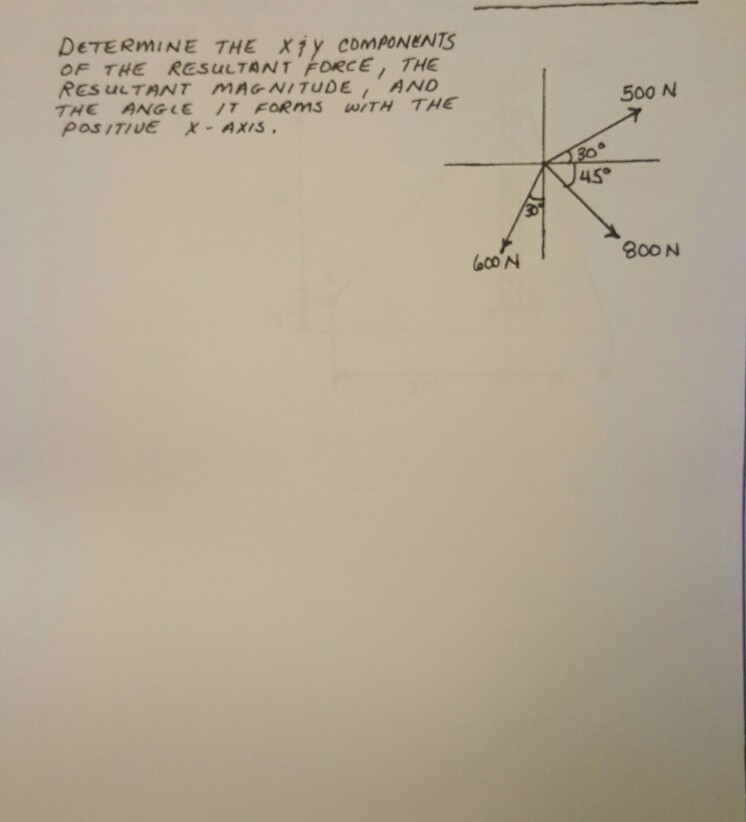 DETERMINE THE X & Y COMPONENTS
OF THE RESULTANT FORCE, THE
RESULTANT MAGNITUDE, AND
THE ANGLE IT FORMS WITH THE
POSITIVE X-AXIS.
500 N
30°
45°
30°
600 N
800 N